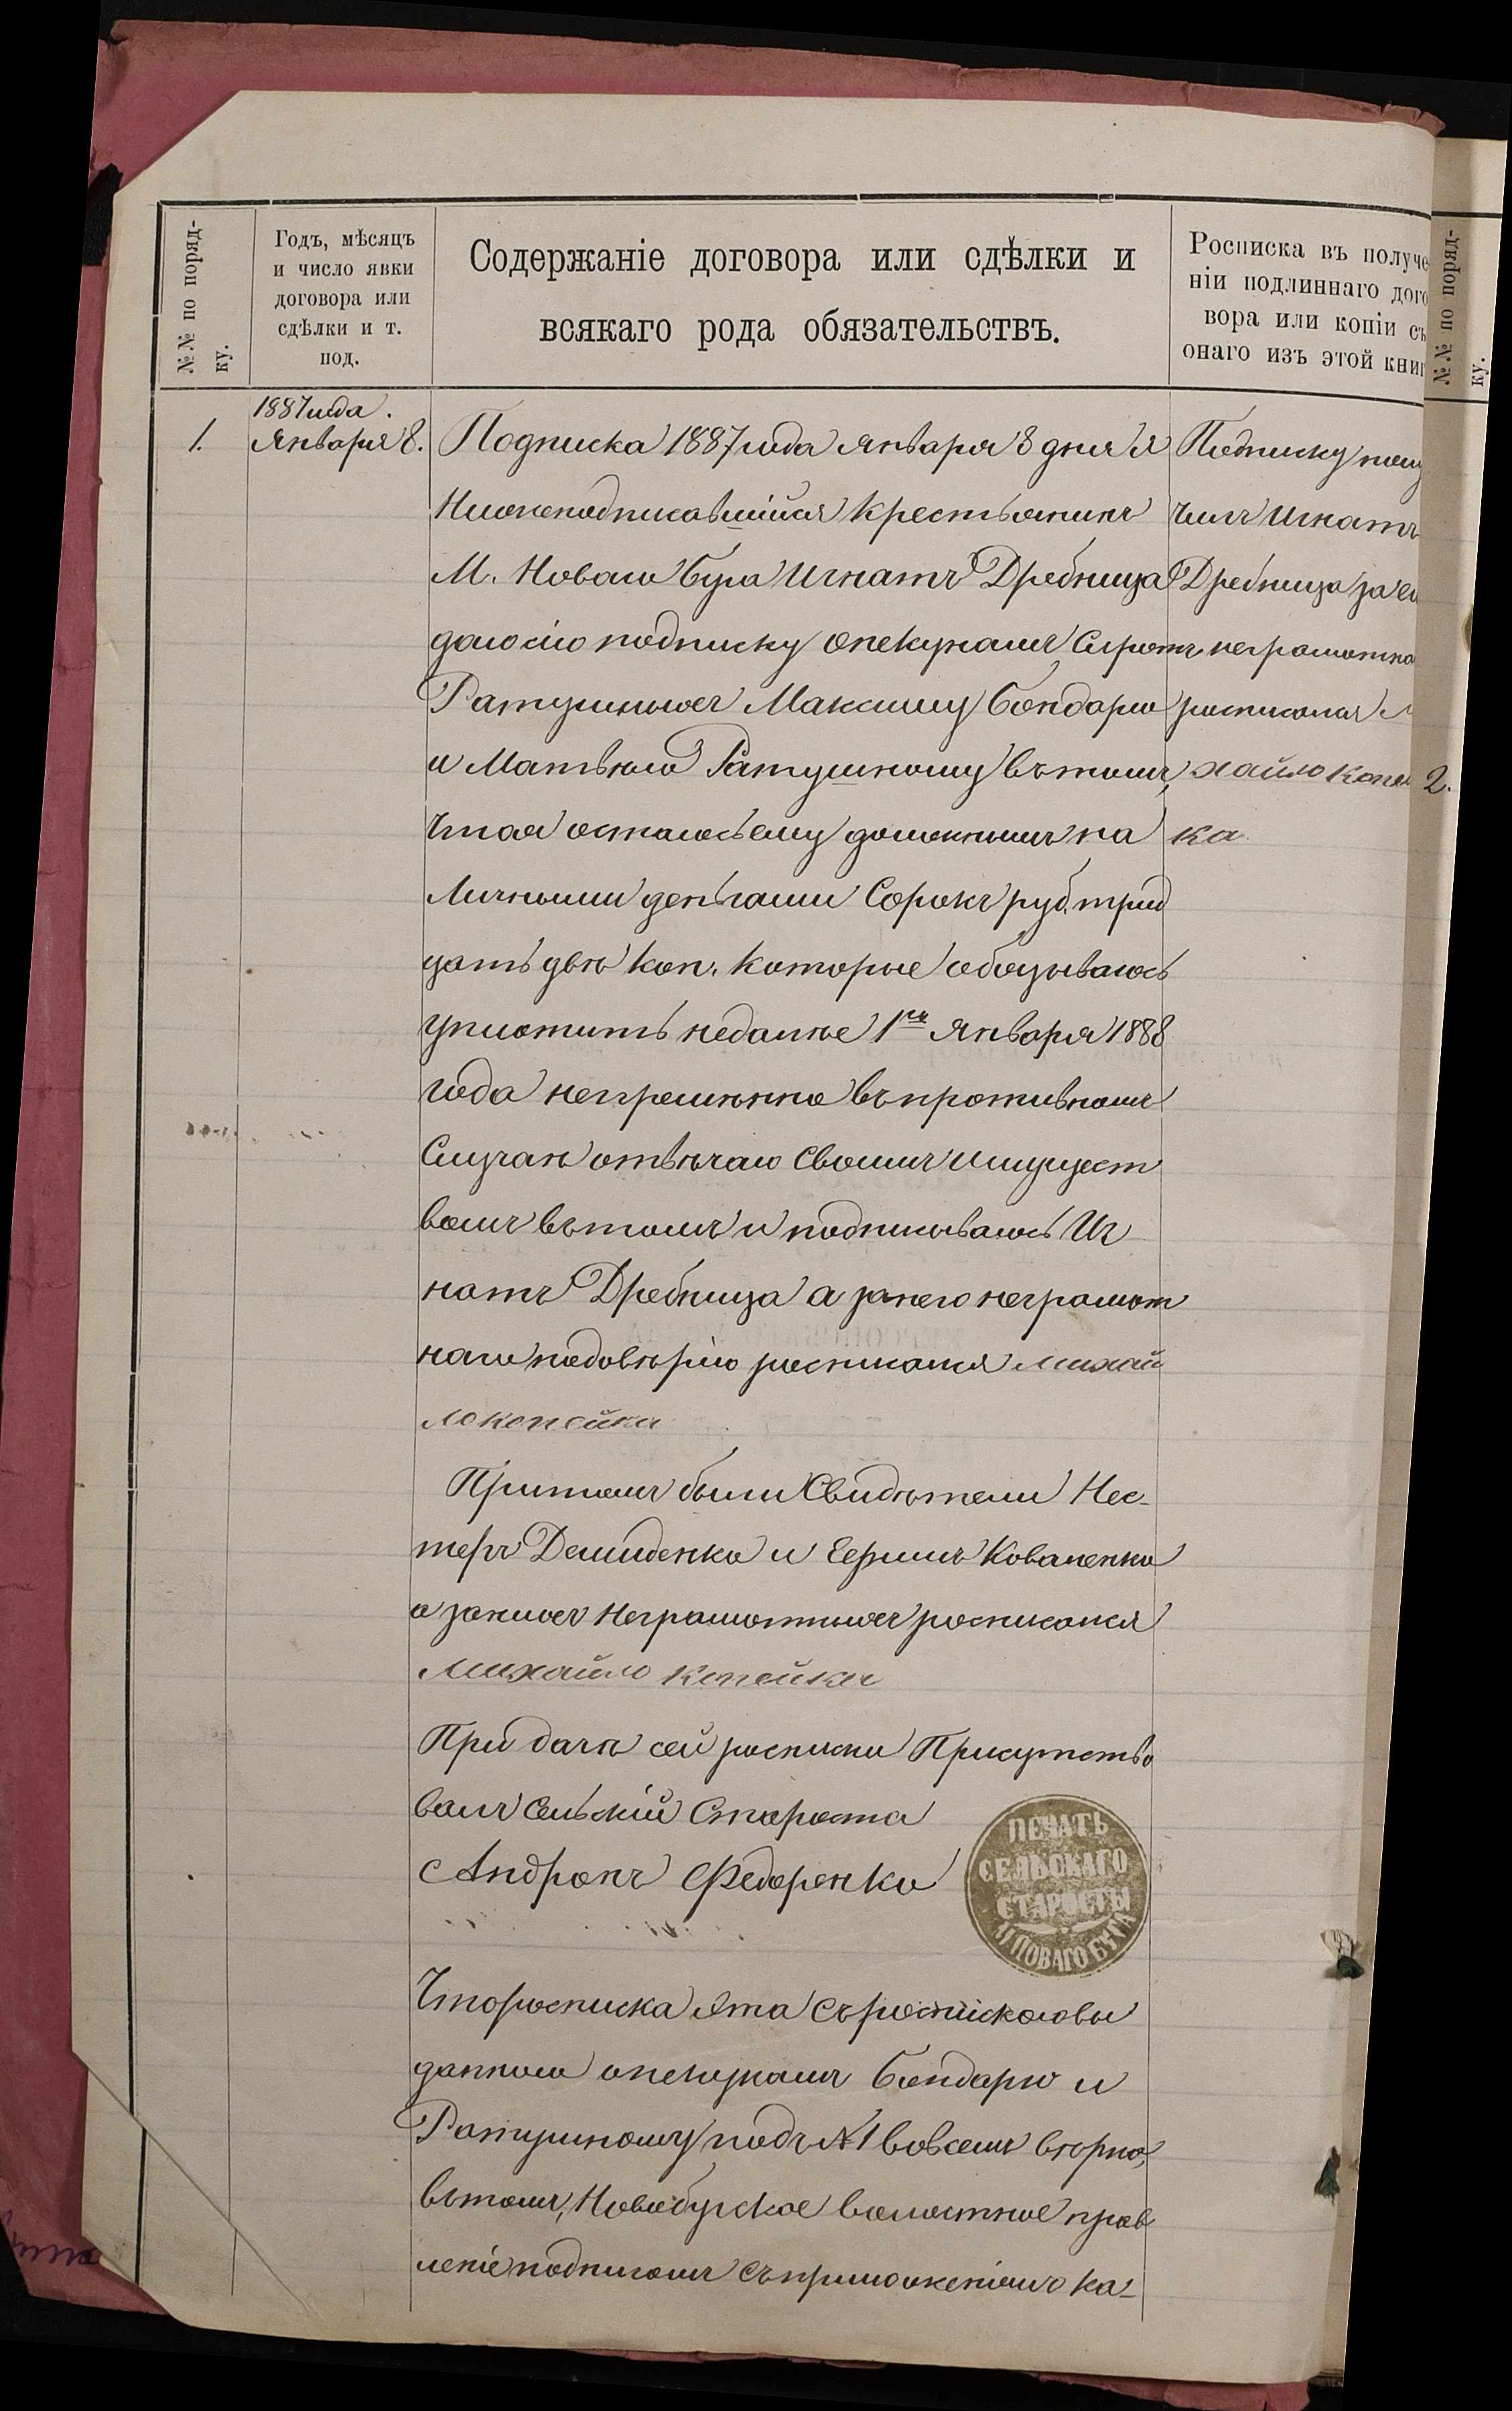 №№ по поряд-
ку.
Годъ, мѣсяцъ
и число явки
договора или
сдѣлки и т.
под.
Содержаніе договора или сдѣлки и
всякаго рода обязательствъ.
Росписка въ получе
ніи подлиннаго дого
вора или копіи съ
онаго изъ этой книг
№№ по поряд-
ку.
1.
1887 года.
Января 8.
Подписка 1887 года января 8 дня я
Нижеподписавшійся крестьянинъ
М. Новаго Буга Игнатъ Дребница
даю сію подписку опекунамъ Сиротъ
Ратушныхъ Максиму Бондарю
и Матвѣю Ратушному въ томъ,
что я остаюсь ему должнымъ на
личными деньгами Сорокъ руб. трид
цать двѣ коп. которые обязываюсь
уплотить недалѣе 1го января 1888
года непремѣнно въ противномъ
Случаѣ отвѣчаю своимъ имущест
вомъ въ томъ и подписываюсь Иг
натъ Дребница а за него неграмот
наго по довѣрію росписался Михай
ло копейка
Притомъ были Свидѣтели Нес-
теръ Демиденко и Ефимъ Коваленко
а за нихъ Неграмотныхъ росписался
Михайло копейка
При дачѣ сей росписки Присутство
валъ Сельскій Староста
Андронъ Федоренко
ПЕЧАТЬ
СЕЛЬСКАГО
СТАРОСТЫ
М НОВАГО БУГА
Что росписка эта съ роспискою вы
данною опекунамъ Бондарю и
Ратушному подъ №1 вовсемъ вѣрно,
въ томъ, Новобугское волостное прав
леніе подписомъ съ приложеніемъ ка-
Подписку полу
чилъ Игнатъ
Дребница за ег
неграмотна
росписался М
хайло Копей
ка
2.